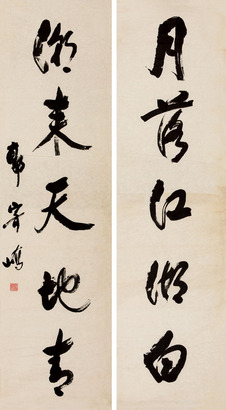 月落江湖白
潮来天地青
郭寄峤